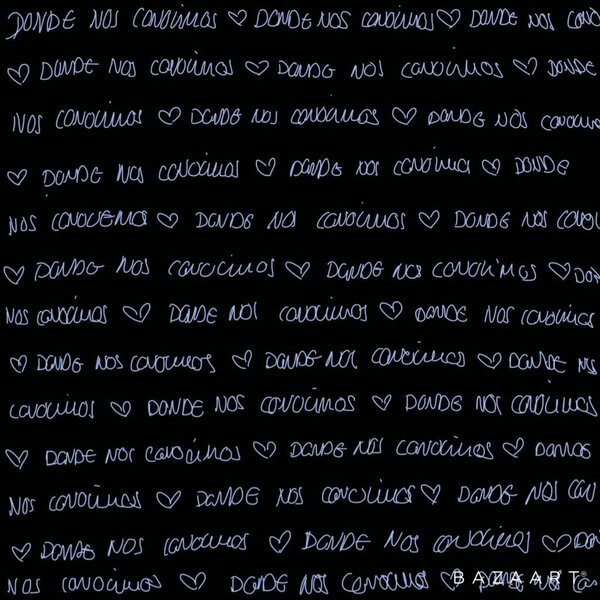 DONDE NOS CONOCIMOS ♡ DONDE NOS CONOCIMOS ♡ DONDE NOS CONO
♡ DONDE NOS CONOCIMOS ♡ DONDE NOS CONOCIMOS ♡ DONDE
NOS CONOCIMOS ♡ DONDE NOS CONOCIMOS ♡ DONDE NOS CONOCIMOS
♡ DONDE NOS CONOCIMOS ♡ DONDE NOS CONOCIMOS ♡ DONDE
NOS CONOCEMOS ♡ DONDE NOS CONOCIMOS ♡ DONDE NOS CONOCI
♡ DONDE NOS CONOCIMOS ♡ DONDE NOS CONOCIMOS ♡ DON
NOS CONOCIMOS ♡ DONDE NOS CONOCIMOS ♡ DONDE NOS CONOCIMOS
♡ DONDE NOS CONOCIMOS ♡ DONDE NOS CONOCIMOS ♡ DONDE NOS
CONOCIMOS ♡ DONDE NOS CONOCIMOS ♡ DONDE NOS CONOCIMOS
♡ DONDE NOS CONOCIMOS ♡ DONDE NOS CONOCIMOS ♡ DONDE
NOS CONOCIMOS ♡ DONDE NOS CONOCIMOS ♡ DONDE NOS CON
♡ DONDE NOS CONOCIMOS ♡ DONDE NOS CONOCIMOS ♡ DON
NOS CONOCIMOS ♡ DONDE NOS CONOCIMOS ♡ DONDE NOS CO
BAZAART®